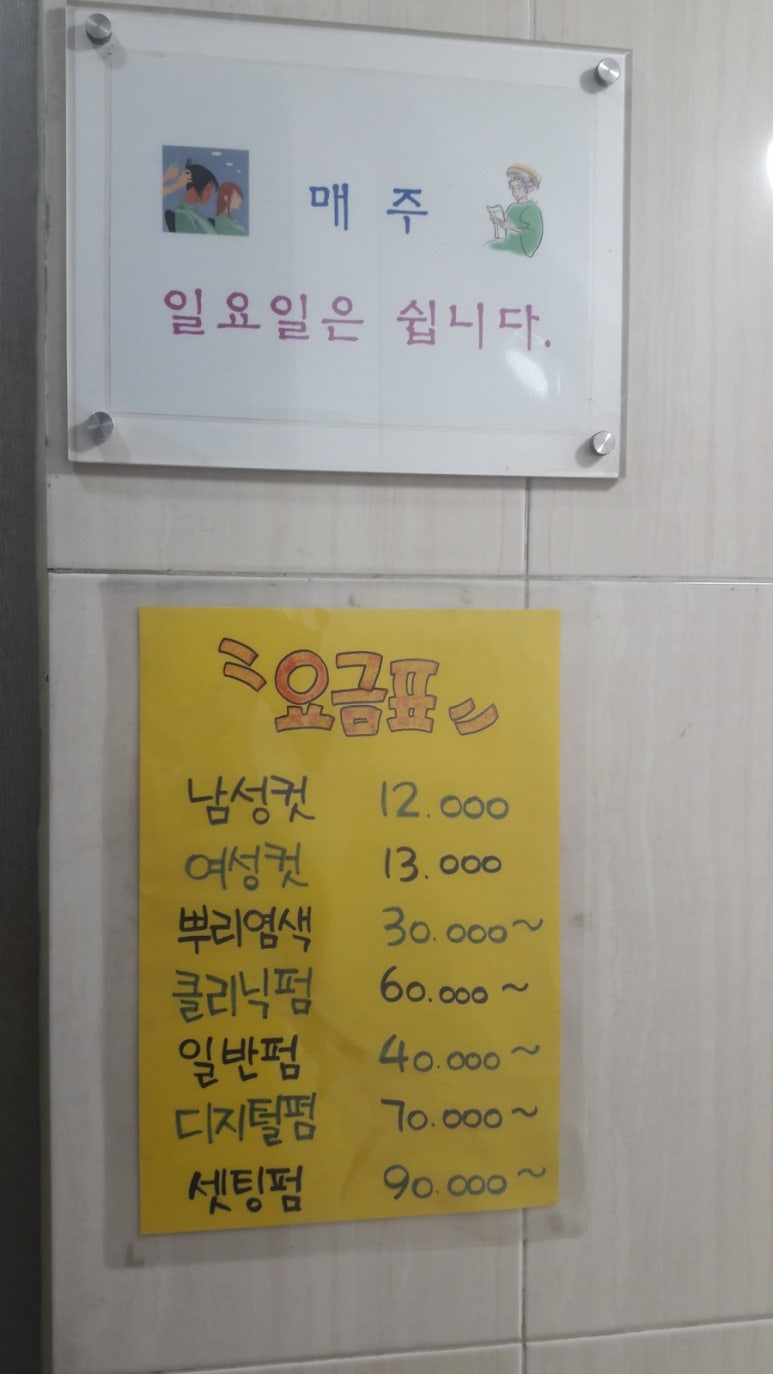 매 주
일요일은 쉽니다.
요금표
남성컷 12.000
여성컷 13.000
뿌리염색 30.000~
클리닉펌 60.000~
일반펌 40.000~
디지털펌 70.000~
셋팅펌 90.000~